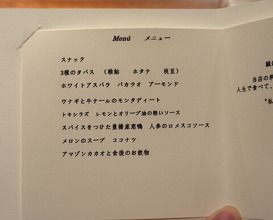 Menú メニュー
スナック
3種のタパス （稚鮎 ホタテ 枝豆）
ホワイトアスパラ バカラオ アーモンド
ウナギと牛テールのモンタディート
トキシラズ レモンとオリーブ油の軽いソース
スパイスをつけた豊橋産鶉 人参のロメスコソース
メロンのスープ ココナツ
アマゾンカカオと食後のお飲物
誠に
当店の料
人生で食べて、
"私